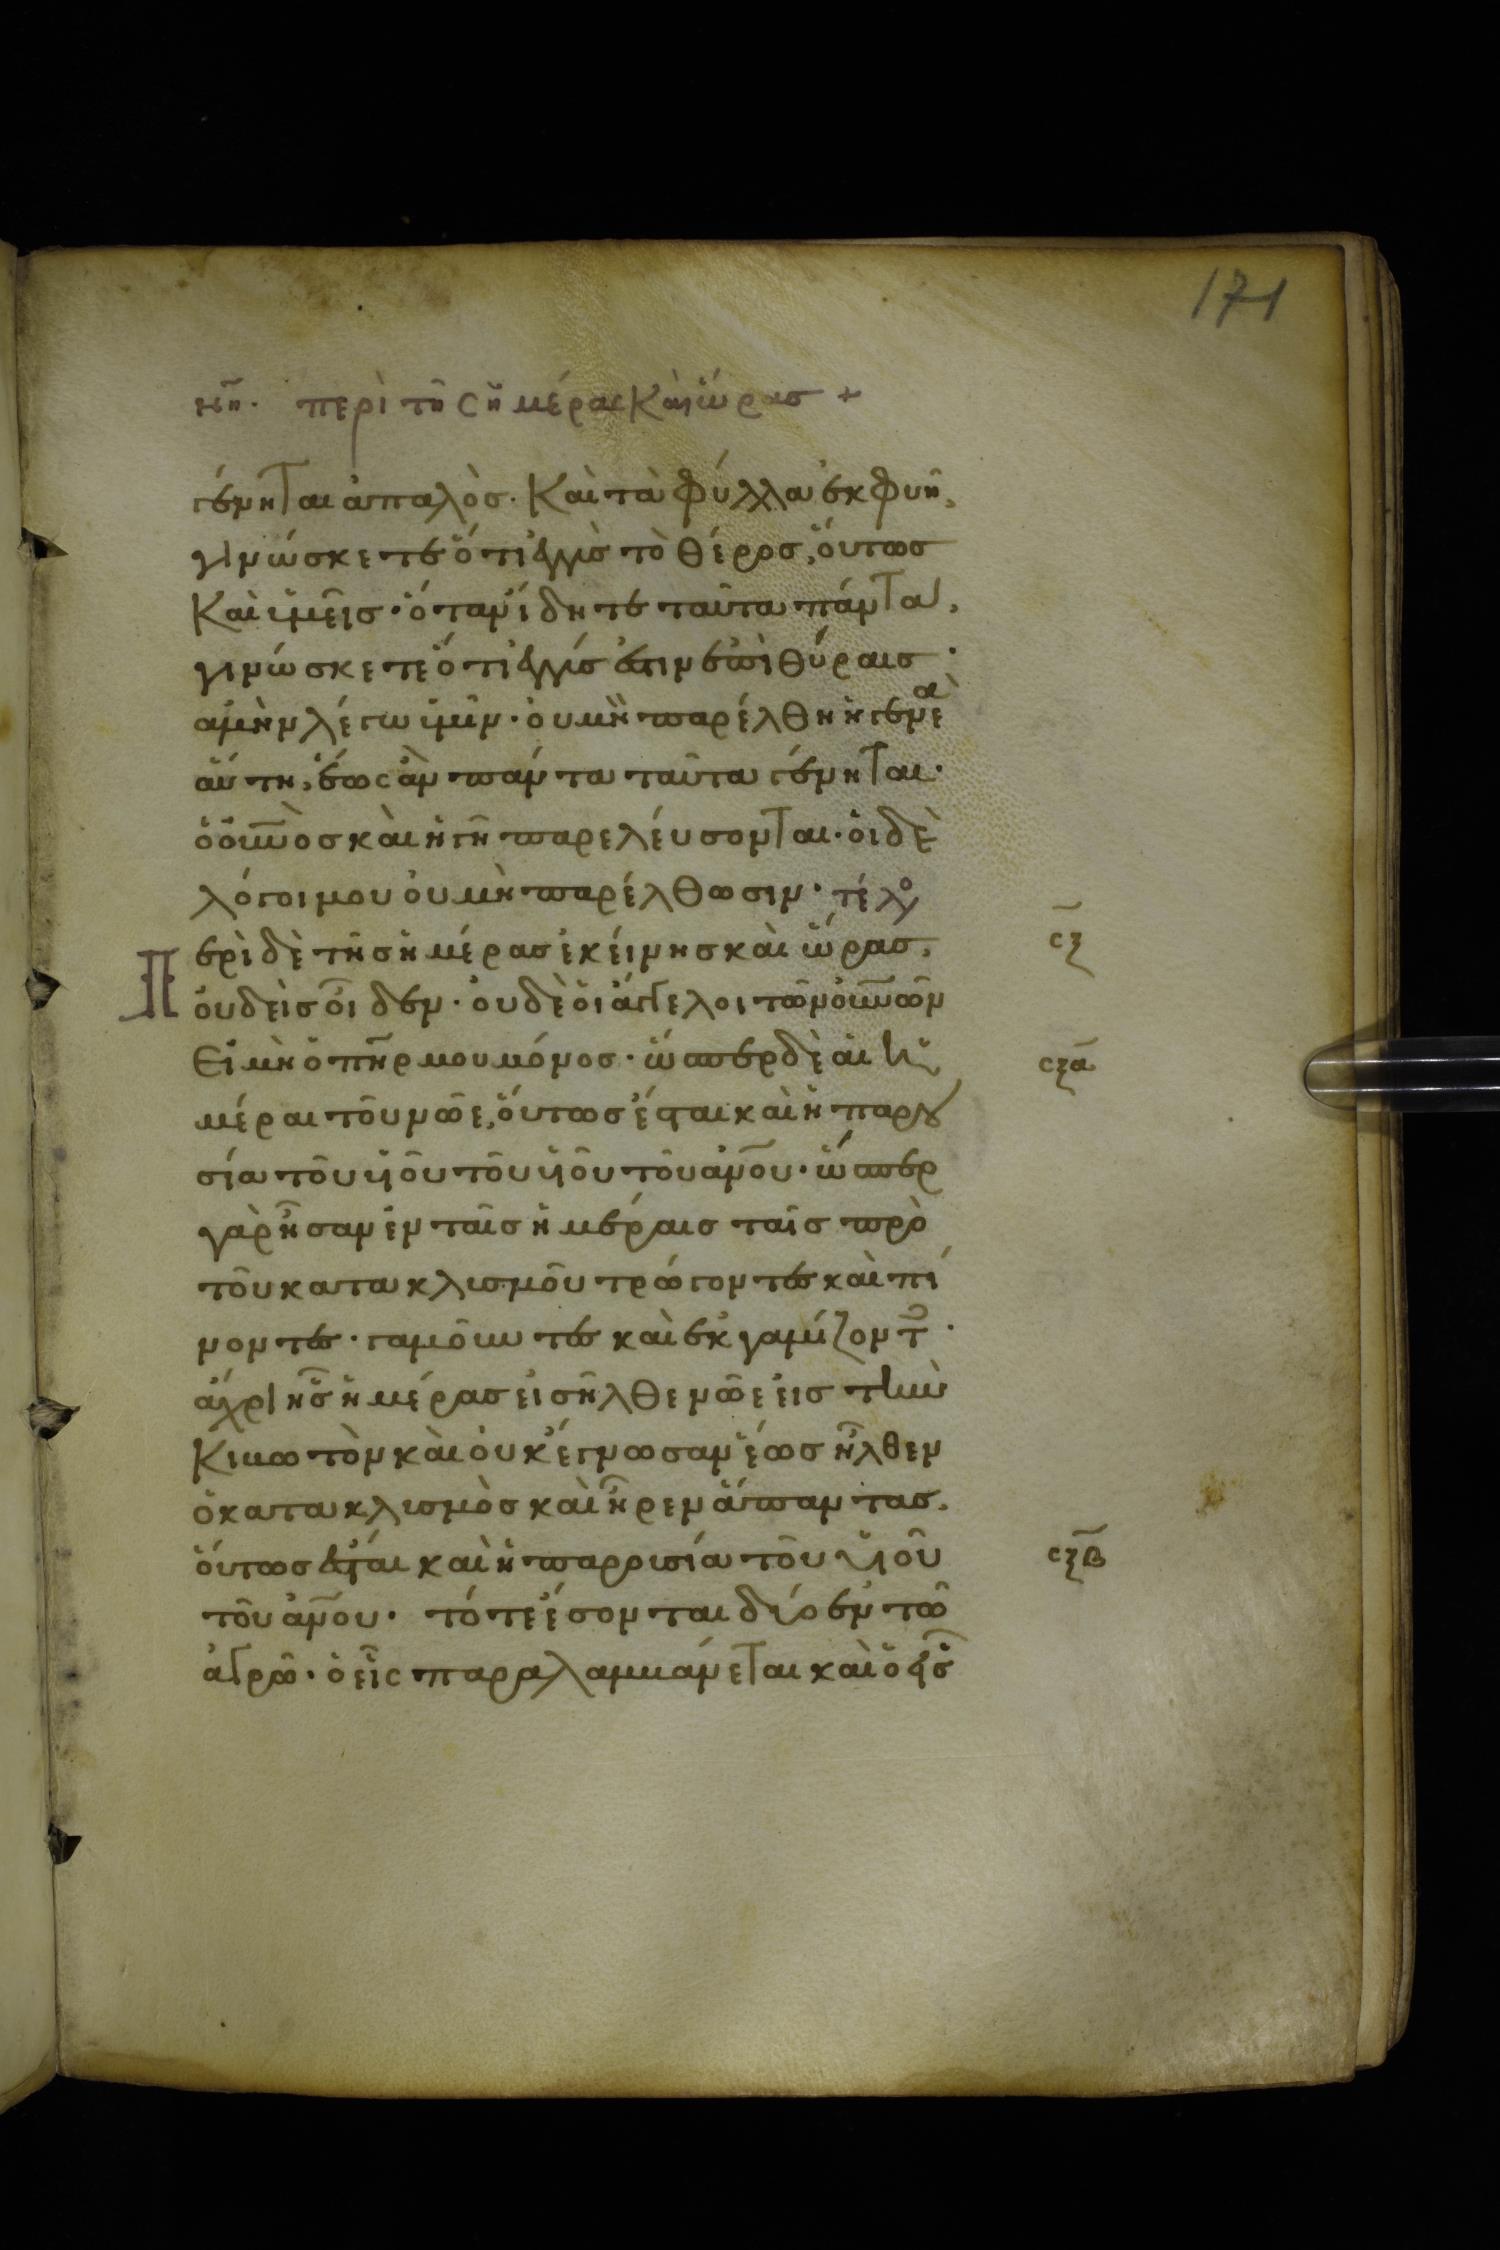 171
νη. περὶ τῆς ἡμέρας καὶ ὥρας +
γένηται ἁπαλὸς. Καὶ τὰ φύλλα ἐκφυῆ,
γινώσκετε ὅτι ἐγγὺς τὸ θέρος, ὅυτως
Και ὑμεῖς· ὅταν ἴδητε ταῦτα πάντα,
γινώσκετε ὅτι ἐγγύς ἐστιν ἐπὶ θύραις·
ἀμὴν λέγω ὑμῖν· ὀυ μὴ παρέλθη ἡ γενεὰ
ἅυτη, ἕως ἂν πάντα ταῦτα γένηται·
ὁ ὀυνὸς κὰι ἡ γῆ παρελέυσονται· ὁι δὲ
λόγοι μου ὀυ μὴ παρέλθωσιν· τέλο
Περὶ δὲ τῆς ἡμέρας ἐκείνης κὰι ὥρας,
ϲξ
ὀυδεὶς οἶδεν· ὀυδὲ ὁι ἄγγελοι τῶν ὀυνῶν
Εἰ μὴ ὁ πηρ μου μόνος· ὥσπερ δὲ ἁι ἡ
ϲξα
μέραι τοῦ νῶε, ὅυτως ἔσται κὰι ἡ παρου
σία τοῦ ὑιοῦ τοῦ ὑιοῦ τοῦ ἀνου· ὥσπερ
γὰρ ἦσαν ἐν ταῖς ἡμέραις ταῖς πρὸ
τοῦ κατακλισμοῦ τρώγοντες κὰι πί
νοντες· γαμοῦντες κὰι ἐκγαμίζοντ·
ἄχρι ἧς ἡμέρας εἰσῆλθε νῶε ἐις τὴν
Κιβωτὸν κὰι ὀυκ ἔγνωσαν ἕως ἦλθεν
ὁ κατακλισμὸς κὰι ἦρεν ἅπαντας,
ὅυτως ἔσται κὰι ἡ παρουσία τοῦ ὑιοῦ
ϲξβ
τοῦ ἀνου· τότε ἔσονται δύο ἐν τῶ
ἀγρῶ· ὁ εἷς παραλαμβάνεται κὰι ὁ εἷς